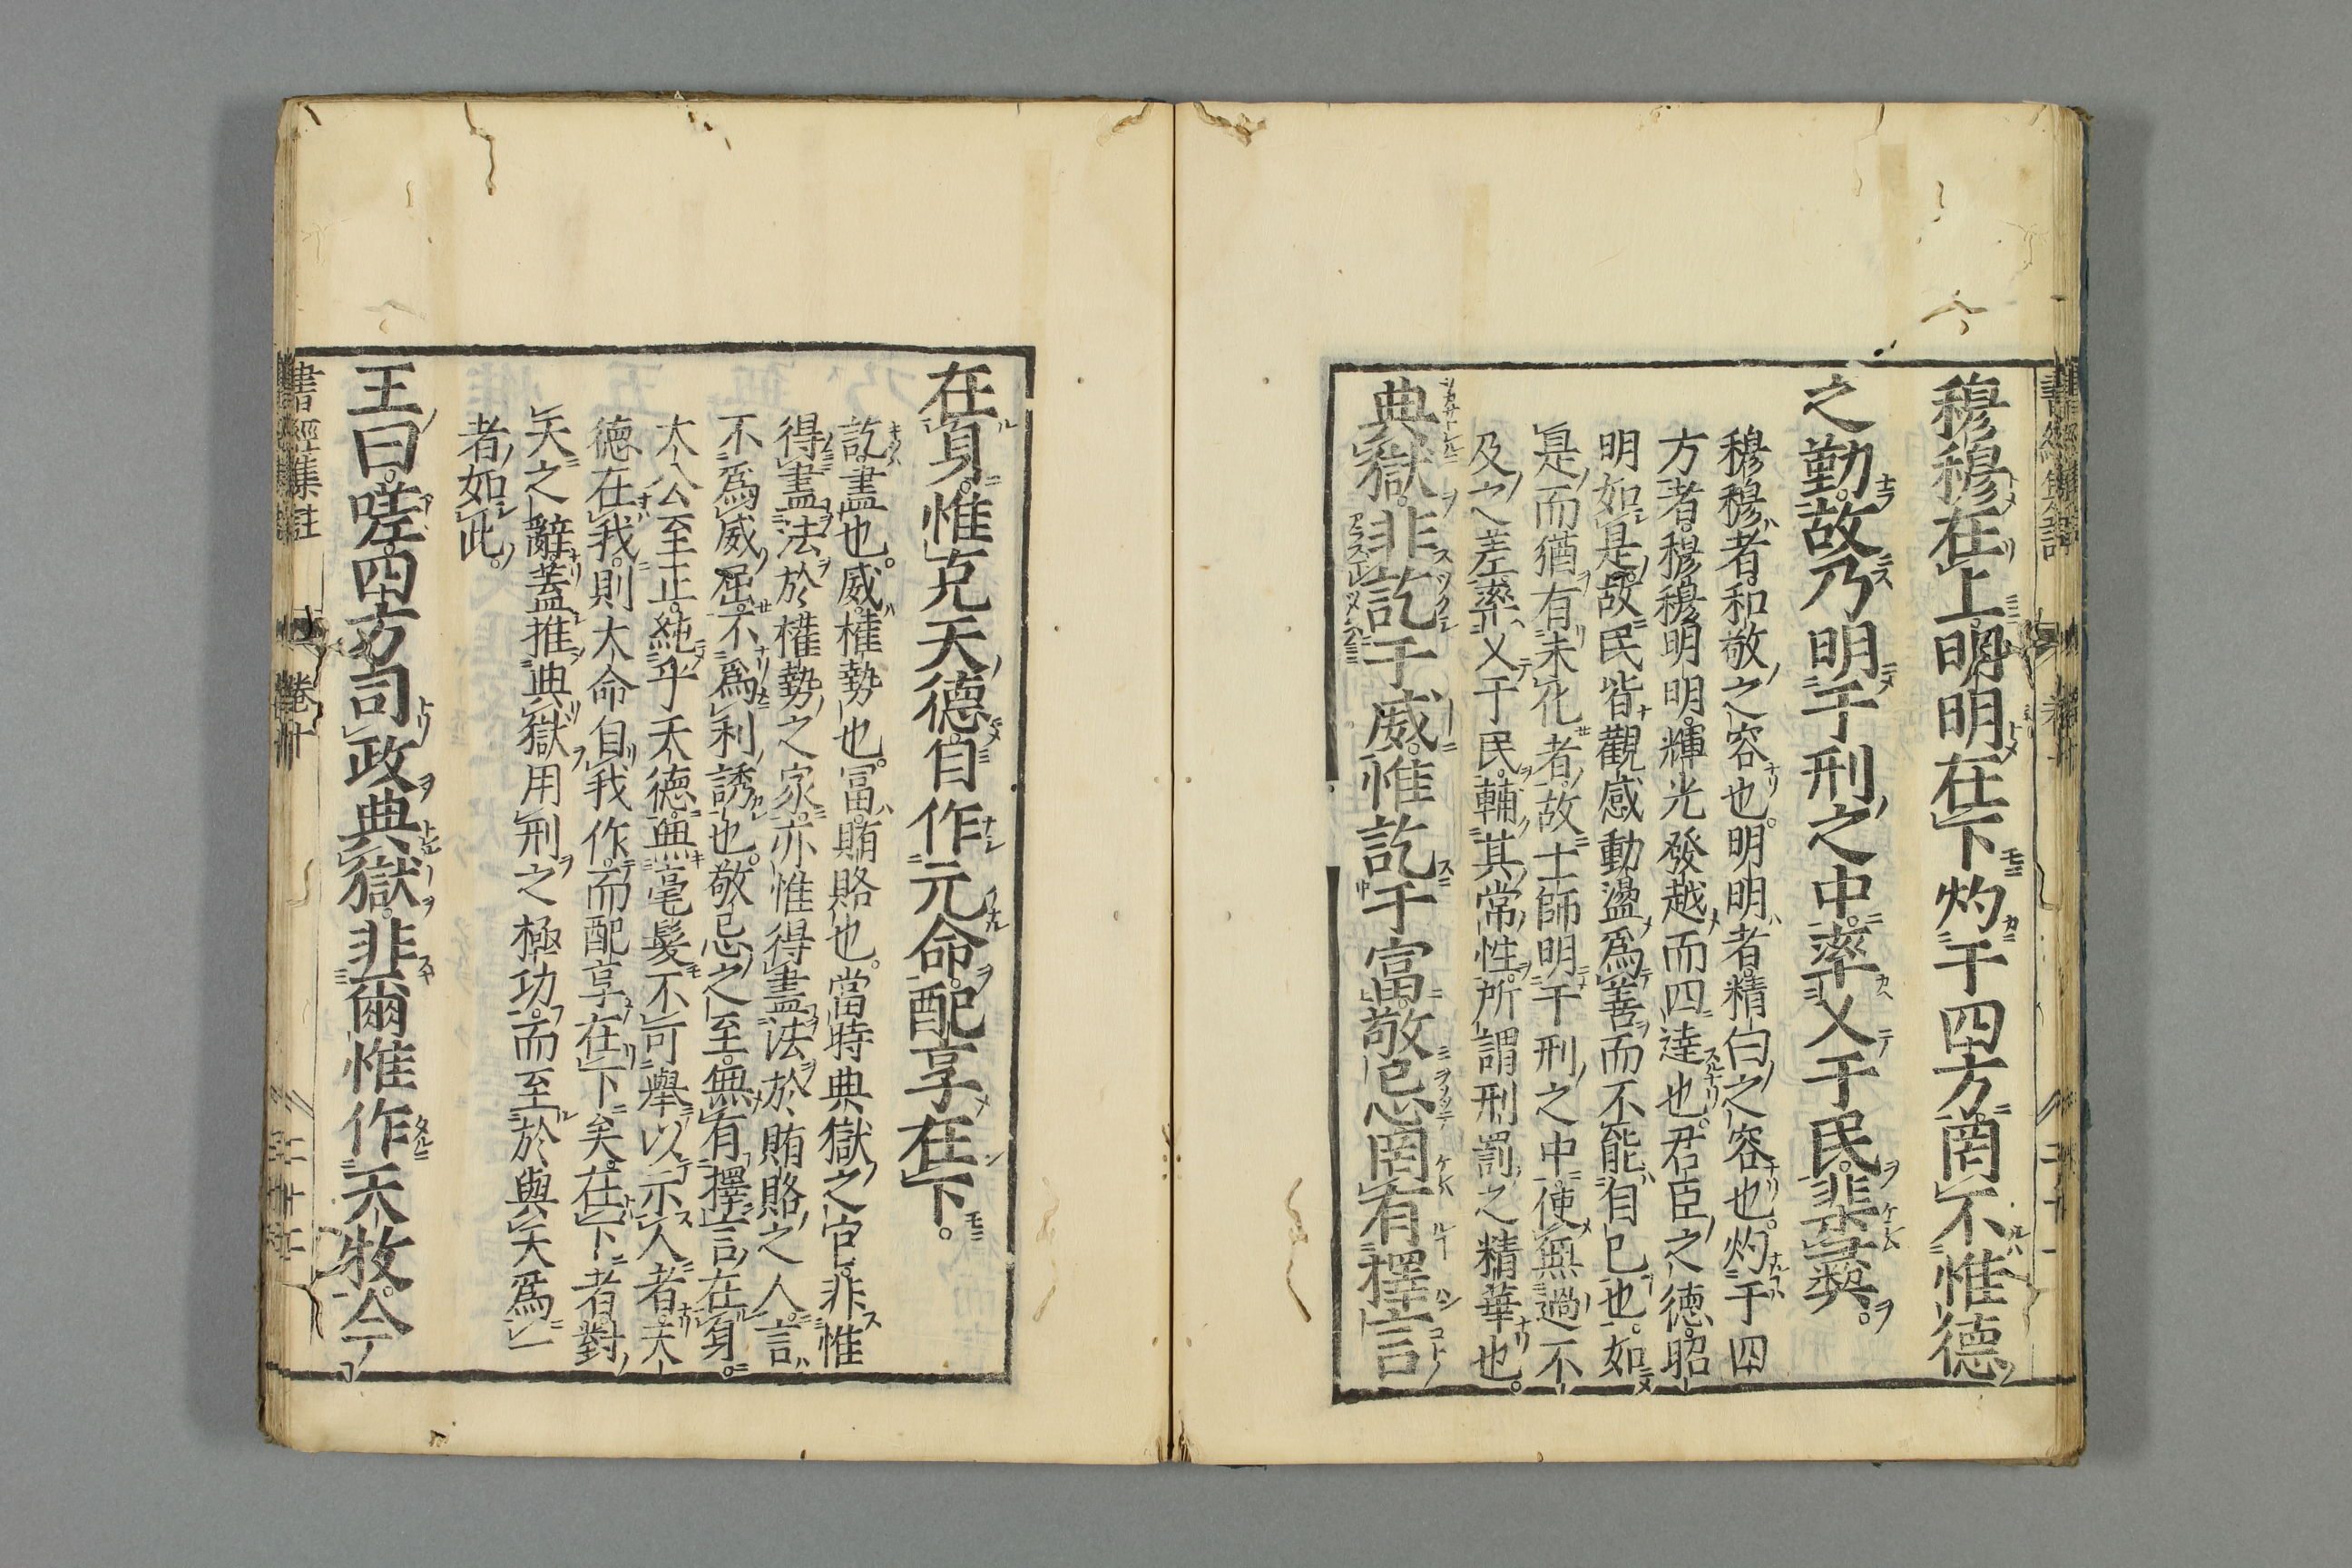 穆穆在上明明在下灼于四方罔不惟德
之勤故乃明于刑之中率乂于民棐彝
穆穆者和敬之容也明明者精白之容也灼于四
方者穆穆明明輝光發越而四達也君臣之德昭
明如是故民皆觀感動盪爲善而不能自已也如
是而猶有未化者故士師明于刑之中使無過不
及之差率乂于民輔其常性所謂刑罰之精華也
典獄非訖于威惟訖于富敬忌罔有擇言
在身惟克天德自作元命配享在下
訖盡也威權勢也冨賄賂也當時典獄之官非惟
得盡法於權勢之家亦惟得盡法於賄賂之人言
不爲威屈不爲利誘也敬忌之至無有擇言在身
大公至正純乎天德無毫髮不可舉以示人者天
德在我則大命自我作而配享在下矣在下者對
天之辭蓋推典獄用刑之極功而至於與天爲一
者如此
王曰嗟四方司政典獄非爾惟作天牧今
書經集註 卷十 二十二